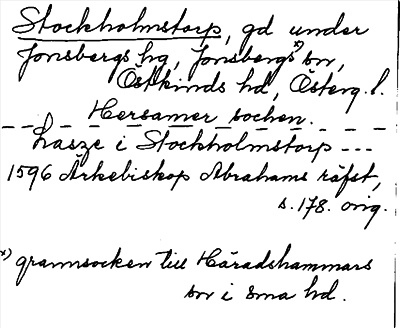 Stockholmstorp, gd under
Jonsbergs hg, Jonsbergs x) sn,
Östkinds hd, Österg. l.
Hersamer sochen.
Lasze i Stockholmstorp ---
1596 Ärkebiskop Abrahams räfst,
s. 178. orig.
x) grannsocken till Häradshammars
sn i sma hd.